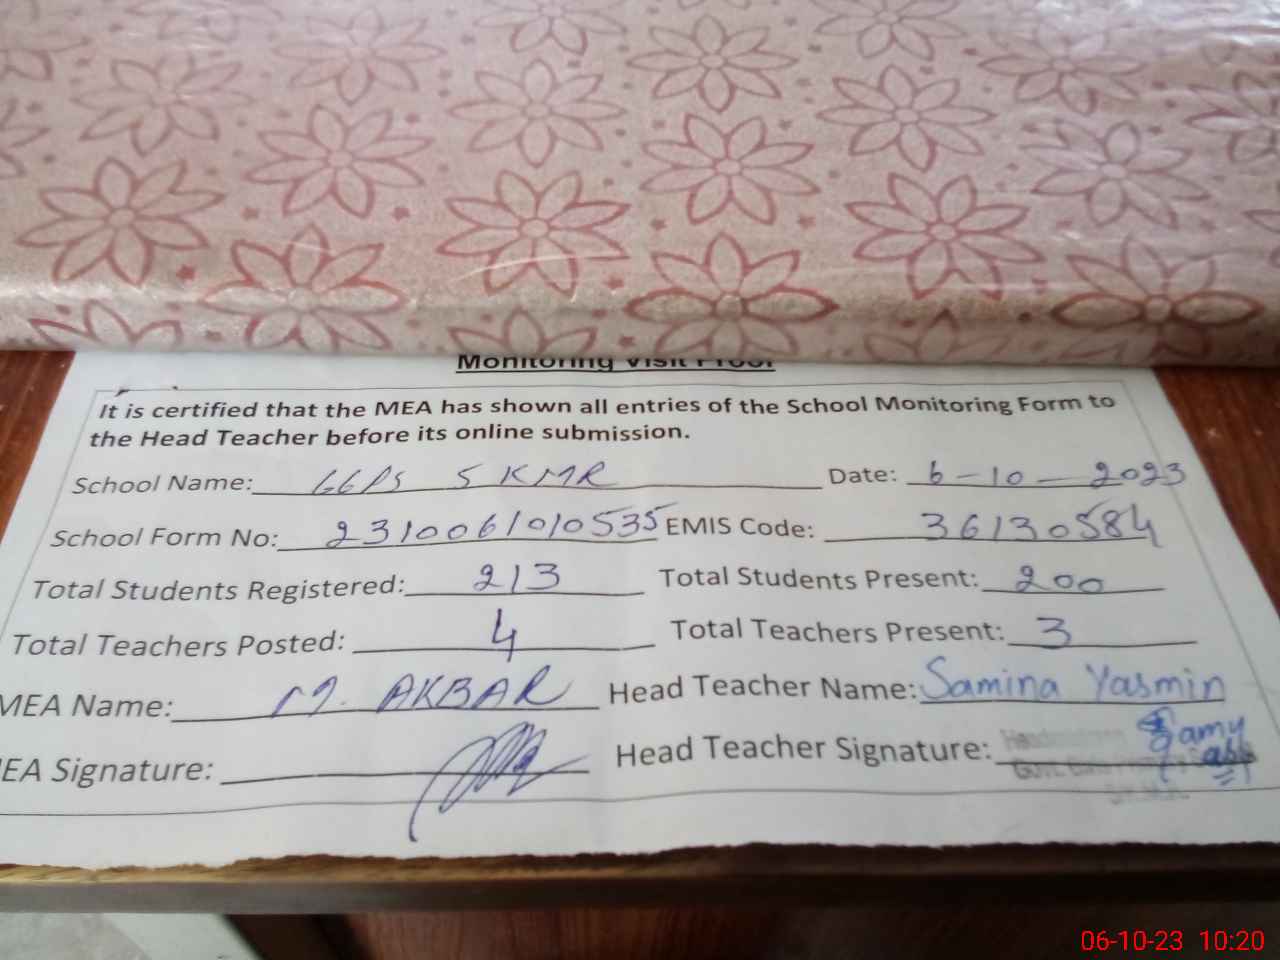 Monitoring Visit Proof
It is certified that the MEA has shown all entries of the School Monitoring Form to
the Head Teacher before its online submission.
School Name: GGPS 5 KMR Date: 6-10-2023
School Form No: 2310061010535 EMIS Code: 36130584
Total Students Registered: 213 Total Students Present: 200
Total Teachers Posted: 4 Total Teachers Present: 3
MEA Name: M. AKBAR Head Teacher Name: Samina Yasmin
EA Signature: Head Teacher Signature:
06-10-23 10:20